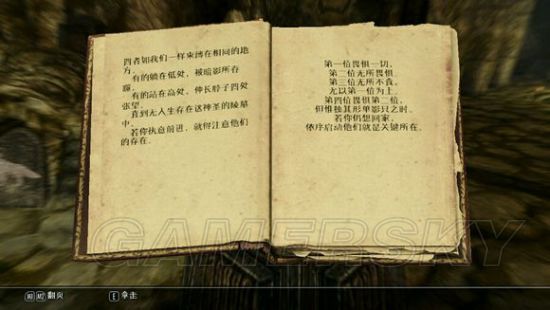 四者如我们一样束缚在相同的地
方。
有的躺在低处，被暗影所吞
噬。
有的站在高处，伸长脖子四处
张望。
直到无人生存在这神圣的陵墓
中。
若你执意前进，就得注意他们
的存在。
第一位畏惧一切。
第二位无所畏惧。
第三位无所不食。
无以第一位为上。
第四位畏惧第二位，
但惟独其形单影只之时。
若你仍想回家，
依序启动他们就是关键所在。
GAMERSKY
翻页
E 拿走